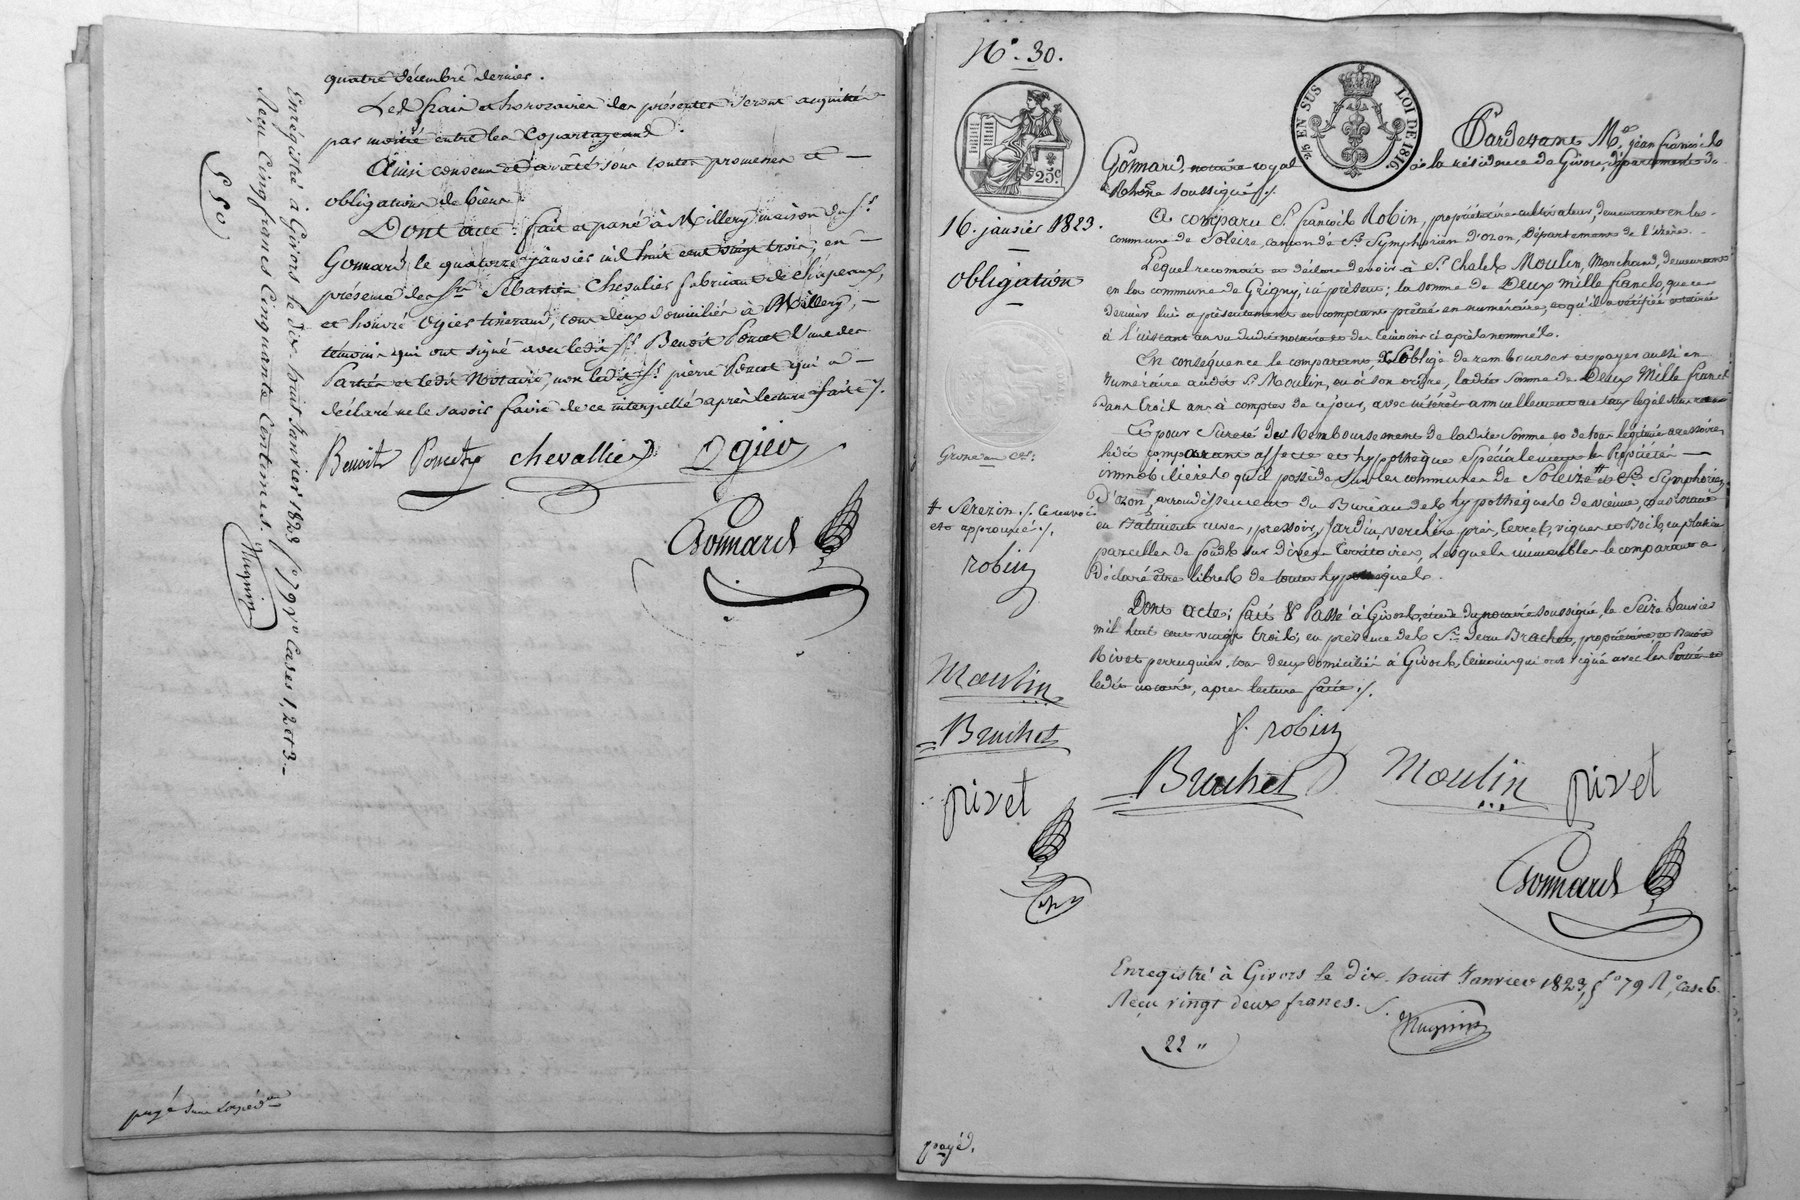 quatre décembre dernier.
Les frais et honoraires des présentes seront acquittés
par moitié entre les Copartageans.
Ainsi convenu et arrêté sous toutes promesses et
obligations de biens.
Dont acte fait et passé à Millery maison du Sr.
Gonnard, le quatorze janvier mil huit cent vingt trois, en
présence des Srs Sébastien Chevalier fabricant de chapeaux,
et honoré Ogier tisserand, tous deux domiciliés à Millery,
témoins qui ont signé avec ledit Sr. Benoit Poncet l'une des
Parties et ledit Notaire, non ledit Sr. pierre Poncet qui a
déclaré ne le savoir faire de ce interpellé après lecture faite ./.
Benoit Poncet chevallier Ogier
Gonnard
Enregistré à Givors le dix-huit Janvier 1823 fo 79 vo Cases 1, 2 et 3.
Reçu Cinq francs Cinquante Centimes.
5 50
payé
No. 30.
2/5 EN SUS LOI DE 1816.
25c
16. janvier 1823.
obligation
Pardevant Me. jean françois
Gonnard, notaire royal à la résidence de Givors, département du
Rhône soussigné ./.
A comparu Sr. françois Robin, propriétaire-cultivateur, demeurant en la
commune de Solaize, canton de St. Symphorien d'ozon, Département de l'isère.
Lequel reconnait et déclare devoir à Sr. Moulin, Marchand, demeurant
en la commune de Grigny, ici présent; la somme de Deux mille francs, que ce
dernier lui a présentement et comptant prêté en numéraire, et qu'il a vérifiée et retirée
à l'instant au vu dudit notaire et des témoins ci après nommés.
En conséquence le comparant s'oblige de rembourser et payer aussi en
numéraire audit Sr. Moulin, ou à son ordre, ladite somme de Deux Mille francs
Dans trois ans à compter de ce jour, avec intérêt annuellement au taux légal
Et pour Sureté du Remboursement de ladite Somme et de tous légitimes accessoires
ledit comparant affecte et hypothèque Spécialement les Propriétés
immobilières qu'il possède sur les communes de Solaize # et St. Symphorien
D'ozon, arrondissement du Bureau des hypothèques de vienne, consistant
en Bâtiment cuvier, pressoir, Jardin, verchère, prés, terres, vignes et Bois, en plusieurs
parcelles de fonds sur divers territoires, Lesquels immeubles le comparant a
Déclaré être libres de toutes hypothèques.
Dont acte; fait & Passé à Givors, étude du notaire soussigné, le Seize Janvier
mil huit cent vingt trois; en présence des Srs. Jean Brachet, propriétaire, et
Rivet perruquier, tous deux domiciliés à Givors, témoins qui ont signé avec les Parties et
ledit notaire, après lecture faite ./.
# Serezin ./. le renvoi
est approuvé ./.
robin
Moulin
Bruchet
rivet
f. robin
Bruchet Moulin rivet
Gonnard
Enregistré à Givors le dix-huit Janvier 1823, fo 79 Ro, Case 6.
Reçu vingt deux francs.
22 "
payé.